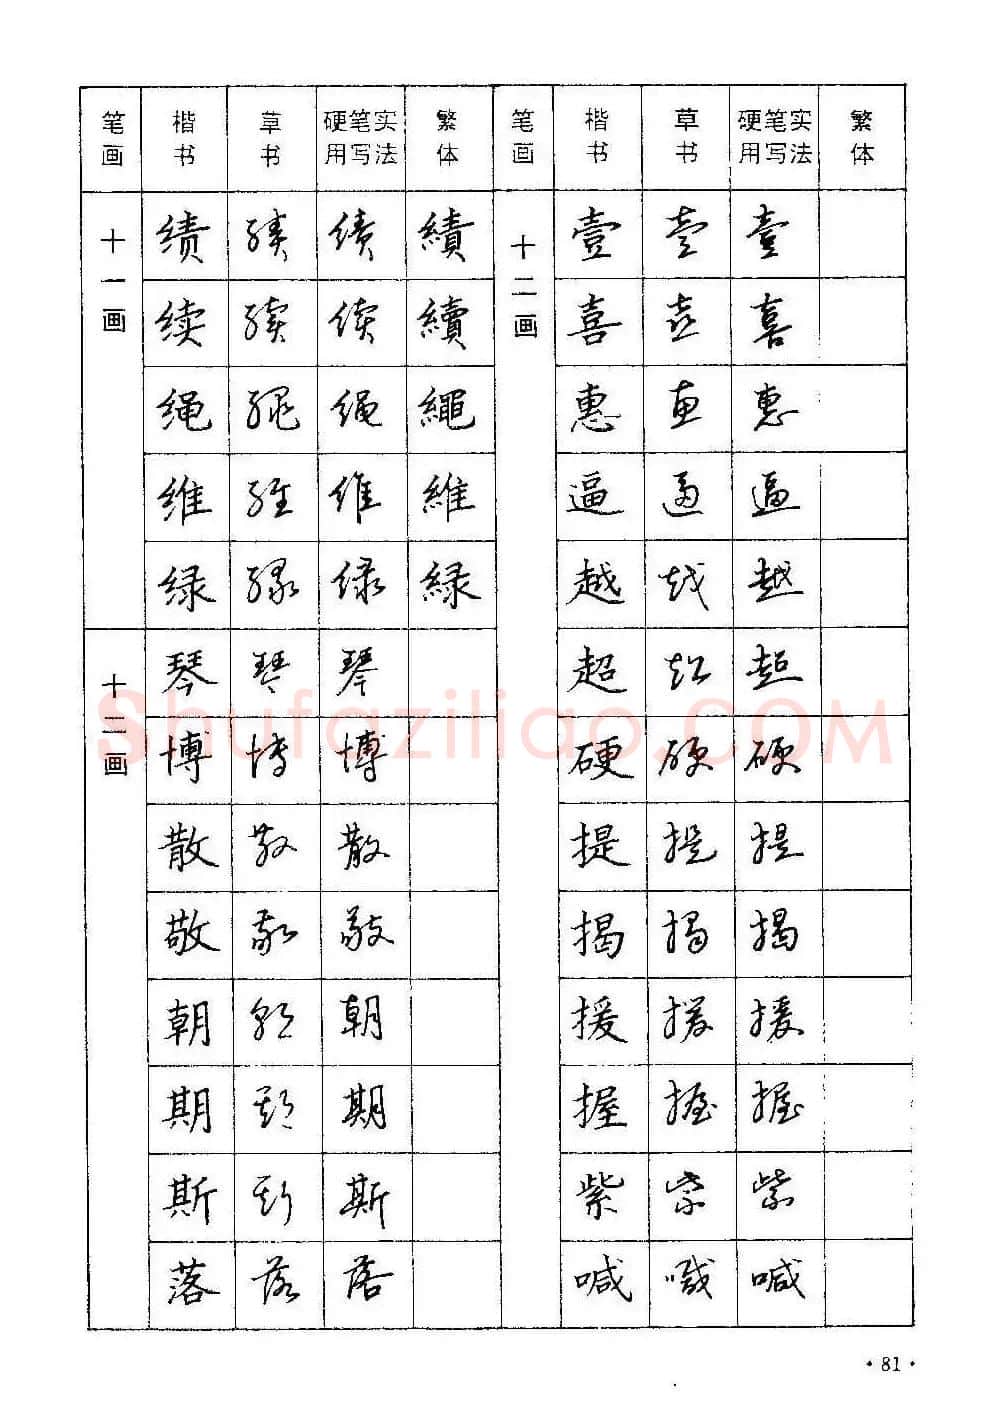 笔画 楷书 草书 硬笔实用写法 繁体 笔画 楷书 草书 硬笔实用写法 繁体
十一画 绩 绩 绩 績 十二画 壹 壹 壹
续 续 续 續 喜 喜 喜
绳 绳 绳 繩 惠 惠 惠
维 维 维 維 逼 逼 逼
绿 绿 绿 緑 越 越 越
十二画 琴 琴 琴 超 超 超
Shufaziliao.COM
博 博 博 硬 硬 硬
散 散 散 提 提 提
敬 敬 敬 揭 揭 揭
朝 朝 朝 援 援 援
期 期 期 握 握 握
斯 斯 斯 紫 紫 紫
落 落 落 喊 喊 喊
·81·